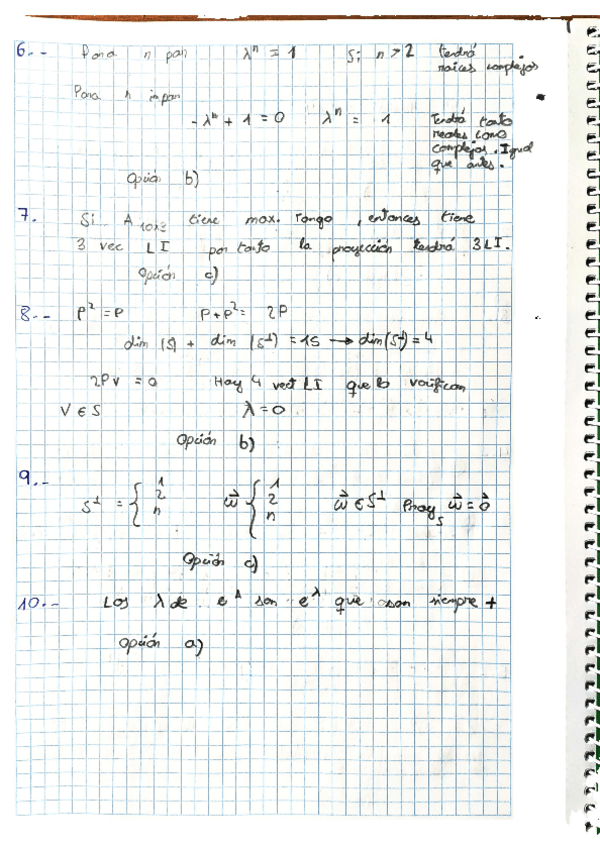 6.- Para n par λⁿ = 1 Si n > 2 tendrá
raíces complejos
Para n impar
- λⁿ + 1 = 0 λⁿ = 1 Tendrá tanto
reales como
complejos. Igual
que antes.
Opción b)
7. Si A₁₀ₓ₃ tiene max. rango, entonces tiene
3 vec LI por tanto la proyección tendrá 3 LI.
Opción c)
8.- P² = P P + P² = 2P
dim (S) + dim (S⊥) = 15 → dim(S⊥) = 4
2Pv = 0 Hay 4 vect LI que lo verifican
V ∈ S λ = 0
Opción b)
9.- S⊥ = { 1 2 n w⃗ { 1 2 n w⃗ ∈ S⊥ Proy_S w⃗ = 0⃗
Opción c)
10.- Los λ de e^A son e^λ que son siempre +
Opción a)